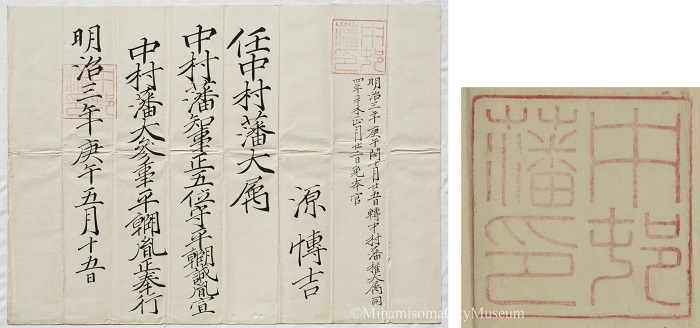 中邨藩印
明治三年庚午閏十月廿五日轉中村藩權大属同
四年辛未正月廿二日免本官
源愽吉
任中村藩大属
中村藩知事正五位守平朝臣誠胤宣
中村藩大参事平朝臣胤正奉行
明治三年庚午五月十五日
中邨藩印
中邨藩印
©MinamisomaCityMuseum